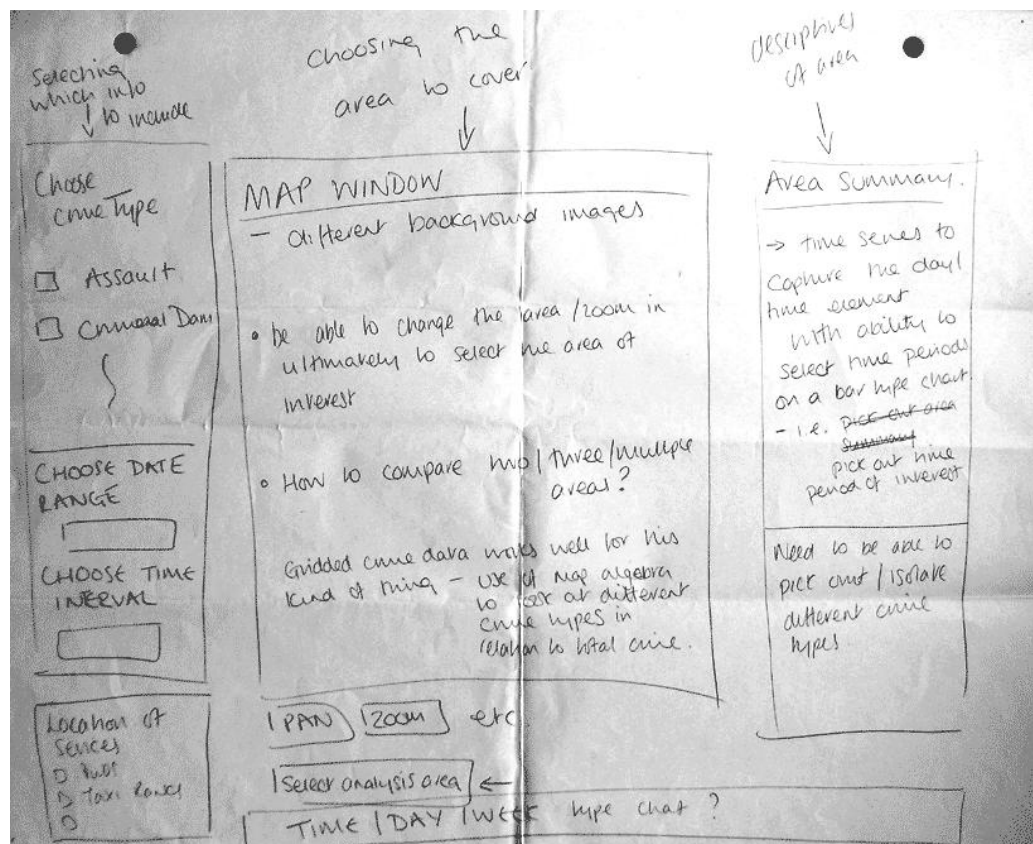 Selecting
which info
to include
choosing the
area to cover
descriptives
of area
Choose
crime Type
Assault
Criminal Dam
CHOOSE DATE
RANGE
CHOOSE TIME
INERVAL
Location of
Services
Pubs
Taxi Ranks
MAP WINDOW
- different background images
• be able to change the area / zoom in
ultimately to select the area of
interest
• How to compare two / three / multiple
areas?
Gridded crime data works well for this
kind of thing - use of map algebra
to look at different
crime types in
relation to total crime.
PAN
ZOOM
etc.
Select analysis area ←
TIME / DAY / WEEK type chat ?
Area Summary.
→ time series to
capture the day/
time element
with ability to
select time periods
on a bar type chart.
- i.e. pick out area
summary
pick out time
period of interest
Need to be able to
pick out / isolate
different crime
types.